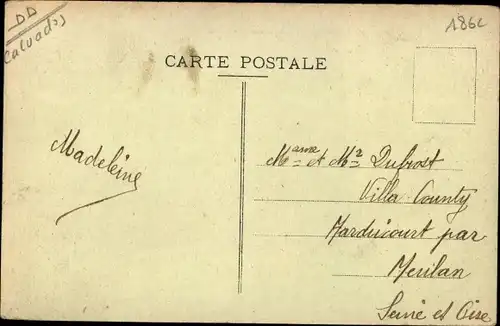 DD
Calvados
186c
CARTE POSTALE
Madeleine
Mame et Mr Dufrost
Villa County
Harduicourt par
Meulan
Seine et Oise